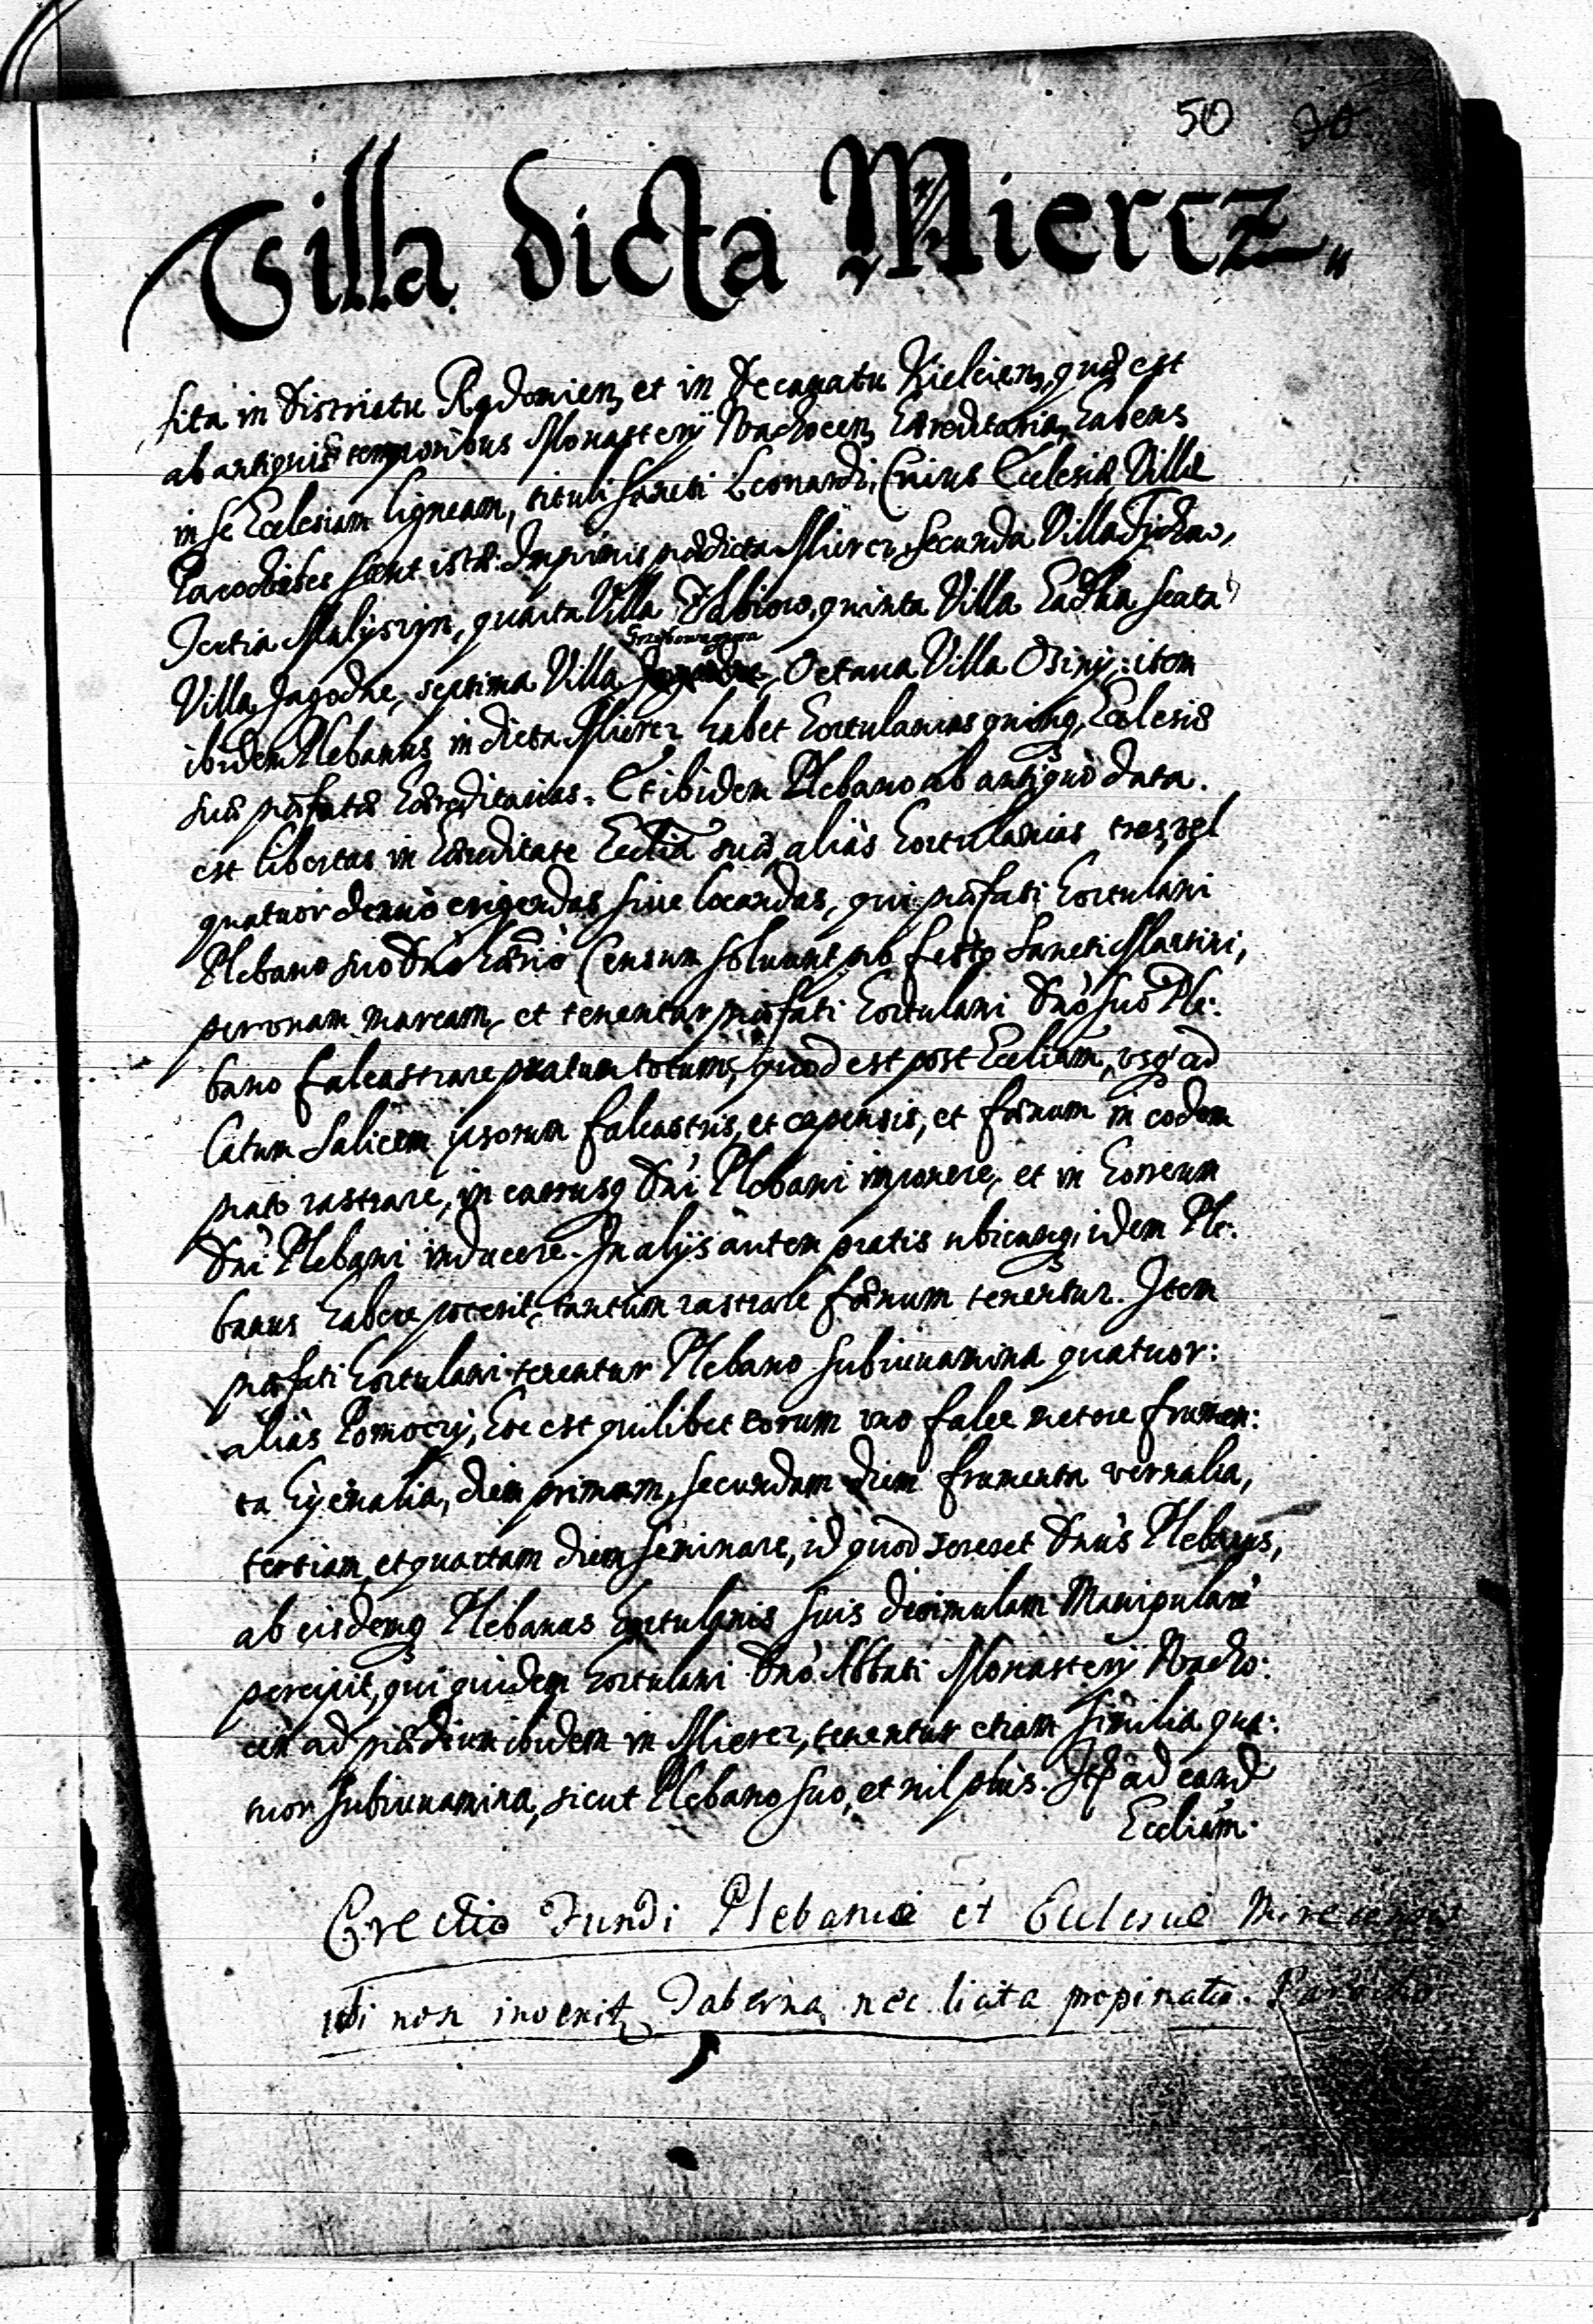 50 70
Villa dicta Miercz
sita in districtu Radomien, et in Decanatu Kielcien, quæ est
ab antiquis temporibus Monasterÿ Wachocen, Hæreditaria, habens
in se Ecclesiam ligneam, tituli Sancti Leonardi, Cuius Ecclesiæ Villæ
Parochiales sunt istæ. Imprimis prædicta Miercz, secunda Villa Tichow,
Tertia Małyszyn, quarta Villa quinta Villa sexta
Grzybowagora
Villa Jagodne, septima Villa Octaua Villa Osinÿ: item
ibidem Plebanus in dicta Miercz habet hortulanias quinq, Ecclesiæ
suæ præfatæ hæreditarias. Et ibidem Plebano ab antiquo data
est libertas in hæreditate Eccliæ suæ, aliàs hortulanias tres, vel
quatuor denuò erigendas siue locandas, qui præfati hortulani
Plebano suo Dnò hærio Censum soluunt pro festo Sancti Martini,
per vnam marcam, et tenentur præfati hortulani Dnò suo Ple:
bano falcastrare pratum totum, quod est post Eccliam, vsq ad
latum Salicem ipsorum falcastris, et expensis, et fœnum in eodem
prato rastrare, in currusq Dni Plebani imponere, et in horreum
Dni Plebani inducere. In alÿs autem pratis ubicunq, idem Ple:
banus habere poterit, tantum rastrare fœnum tenentur. Item
præfati hortulani tenentur Plebano subiuuamina quatuor:
aliàs Pomocÿ, hoc est quilibet eorum vno falce metere frumen:
ta hÿemalia, diem primam, secundam diem frumenta vernalia,
tertiam, et quartam diem seminare, id quod sereret Dnus Plebanus,
ab eisdemq Plebanus hortulanis suis decimulam Manipularē
percipit, qui quidem hortulani Dnò Abbati Monasterÿ Wacho:
cen ad prædium ibidem in Miercz, tenentur etiam similia qua:
tuor subiuuamina, sicut Plebano suo, et nil plus. Itē ad eand
Eccliam.
Erectio Fundi Plebaniæ et Ecclesiæ
ubi non invenit Taberna nec licita propinatio.